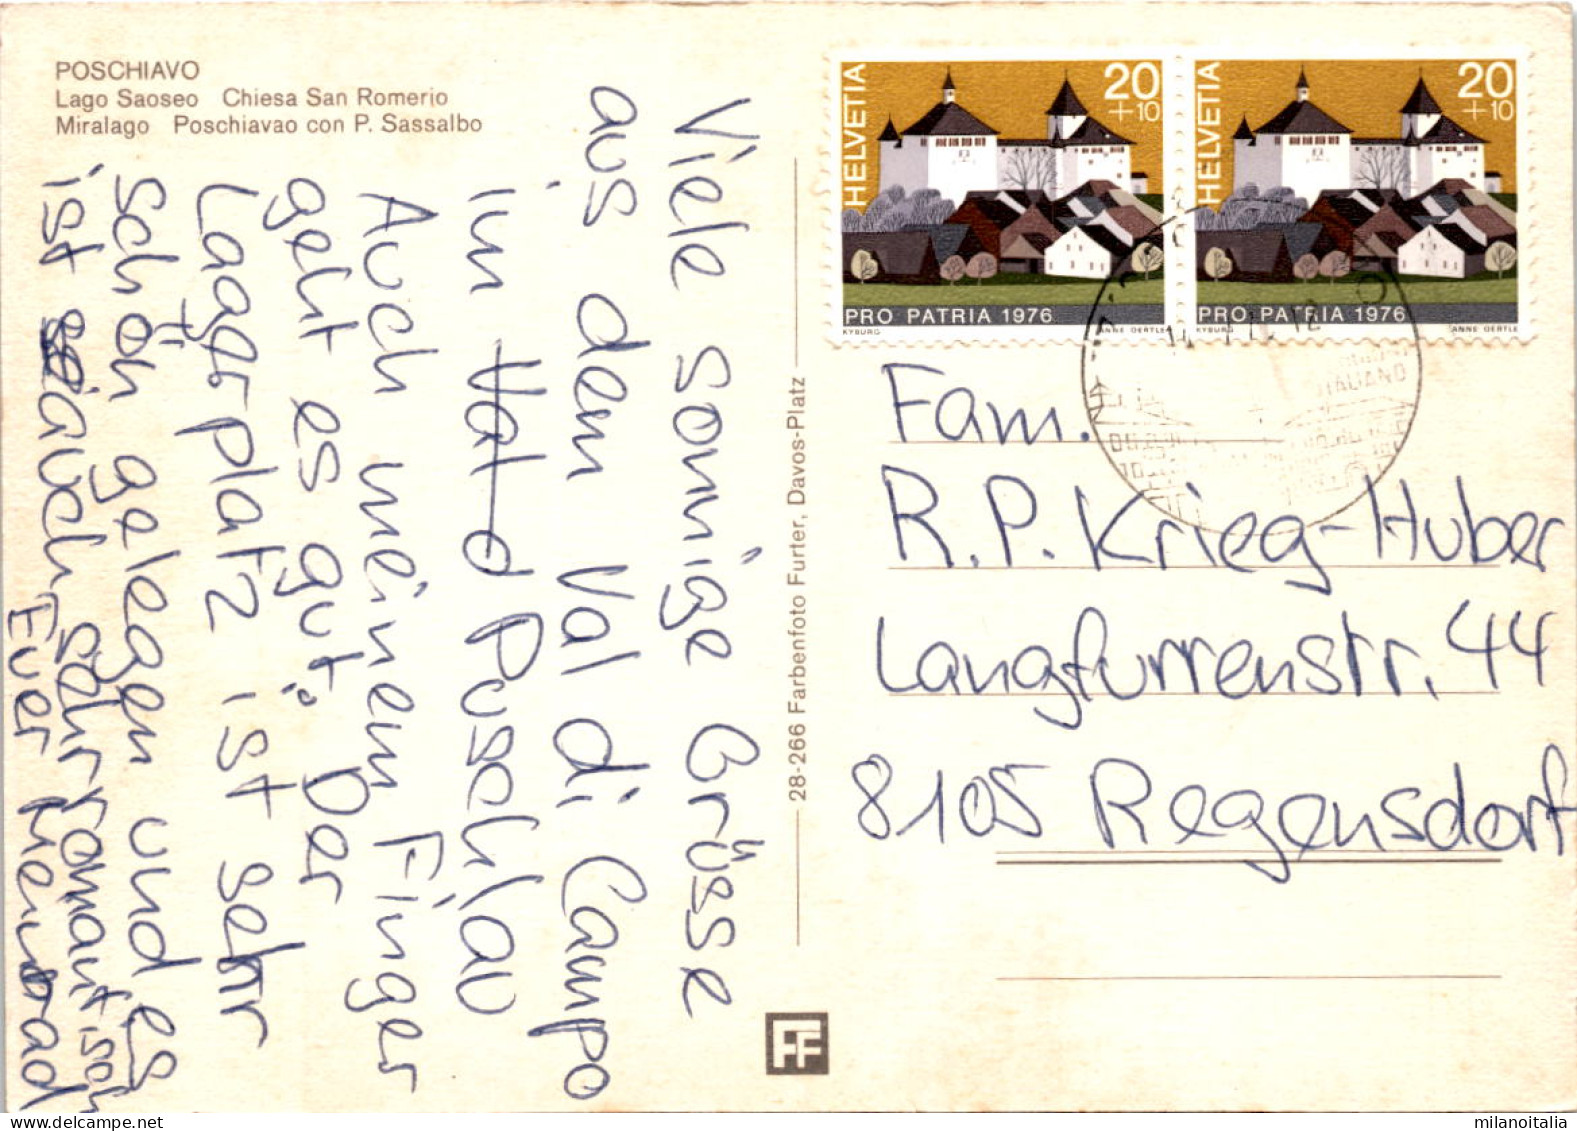 POSCHIAVO
Lago Saoseo Chiesa San Romerio
Miralago Poschiavao con P. Sassalbo
Viele sonnige Grüsse
aus dem Val di Campo
im Val d Puschlav
Auch meinem Finger
geht es gut. Der
Lagerplatz ist sehr
schön gelegen und es
ist auch sehr romantisch
Euer Meinrad
28-266 Farbenfoto Furter, Davos-Platz
FF
HELVETIA
20
+10
PRO PATRIA 1976
KYBURG
ANNE OERTLE
HELVETIA
20
+10
PRO PATRIA 1976
KYBURG
ANNE OERTLE
ITALIANO
Fam.
R.P. Krieg-Huber
Langfurrenstr. 44
8105 Regensdorf
milanoitalia